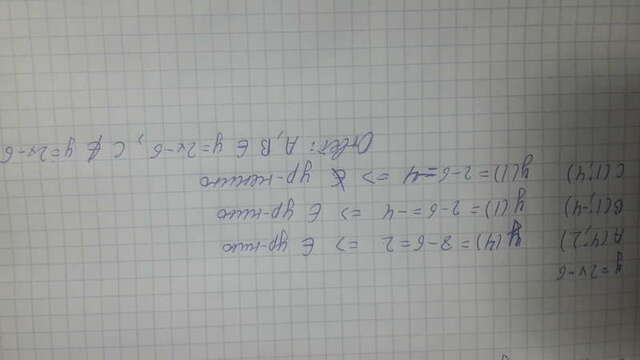 y=2x-6
A(4;2) y(4)=8-6=2 => ∈ ур-нию
B(1;-4) y(1)=2-6=-4 => ∈ ур-нию
C(1;4) y(1)=2-6=-4 => ∉ ур-нению
Ответ: A, B ∈ y=2x-6, C ∉ y=2x-6